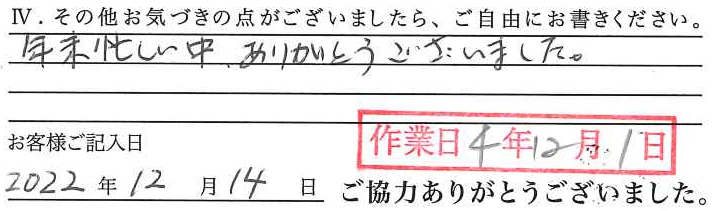 Ⅳ．その他お気づきの点がございましたら、ご自由にお書きください。
年末忙しい中、ありがとうございました。
お客様ご記入日
作業日 4年12月1日
2022年12月14日
ご協力ありがとうございました。